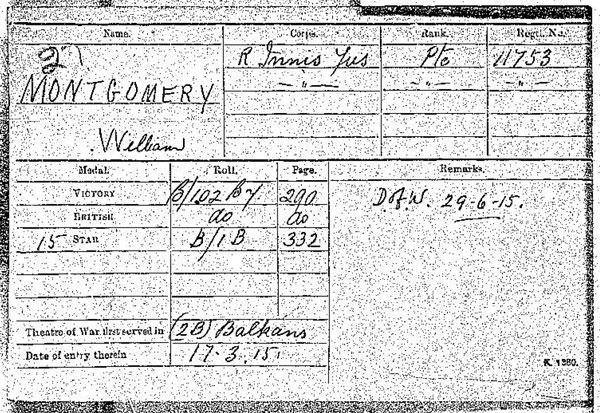 Name. Corps. Rank. Regtl. No.
R Innis Fus Pte 11753
MONTGOMERY —"— —"— —"—
William
Medal. Roll. Page. Remarks.
VICTORY B/102 B7 290 D. of W. 29-6-15.
BRITISH do do
15 STAR B/1 B 332
Theatre of War first served in (2B) Balkans
Date of entry therein 17.3.15.
K. 1380.